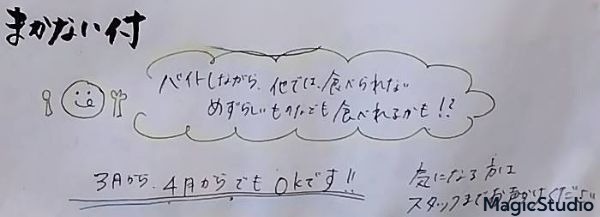 まかない付
バイトしながら、他では、食べられない
めずらしいものなども食べれるかも!?
3月から、4月からでもOKです!!
気になる方は
スタッフまでお声かけください
MagicStudio